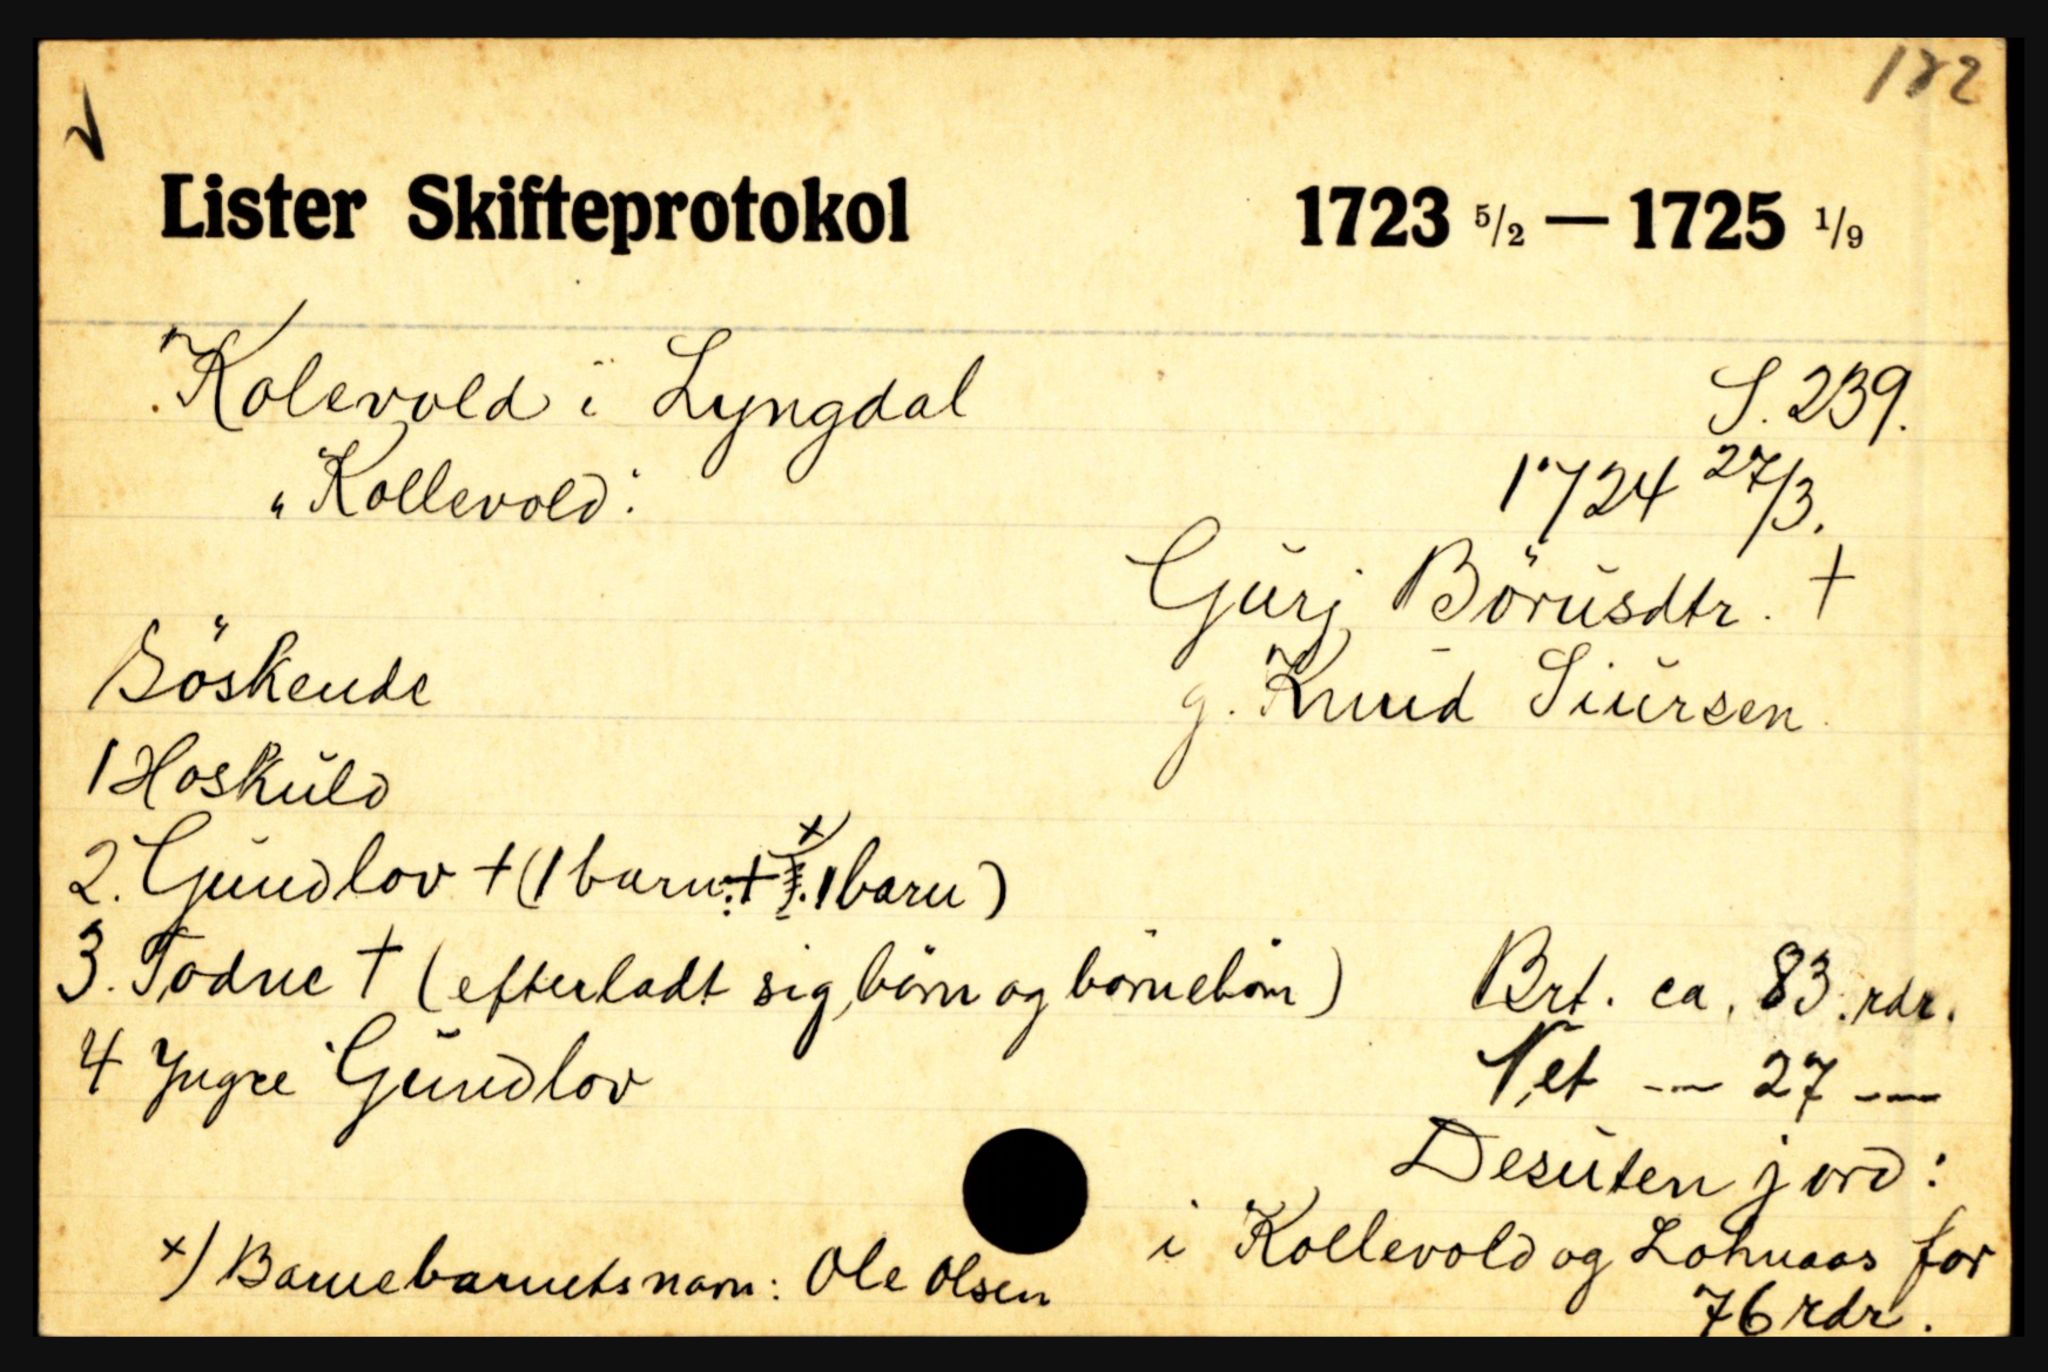 182
Lister Skifteprotokol 1723 5/2 — 1725 1/9
Kolevold i Lyngdal S. 239.
"Kollevold: 1724 27/3.
Gurj Börusdtr. †
Söskende g. Knud Siursen
1 Hoskuld
2. Gundlov † (1 barn: † x) 1 barn)
3. Todne † (efterladt sig börn og börnebörn) Brt. ca. 83 rdr.
4 Yngre Gundlov Net -- 27 --
Desuten jord:
i Kollevold og Lohnaas for
x) Barnebarnets navn: Ole Olsen
76 rdr.